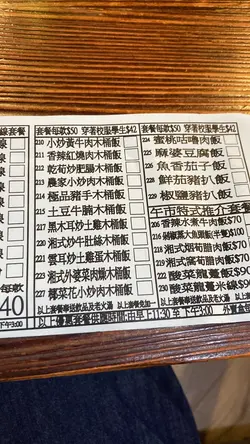 線套餐
線
線
線
線
線
線
線
每款
40
下午3:00
套餐每款$50 穿著校服學生$42
210 小炒黃牛肉木桶飯
211 香辣紅燒肉木桶飯
212 乾筍炒肥腸木桶飯
213 農家小炒肉木桶飯
214 極品豬手木桶飯
215 土豆牛腩木桶飯
217 黑木耳炒土雞木桶飯
218 湘式炒牛肚絲木桶飯
221 雲耳炒土雞蛋木桶飯
223 湘式外婆菜肉燥木桶飯
227 椰菜花小炒肉木桶飯
以上套餐奉送飲品及老火湯
套餐每款$50 穿著校服學生$42
224 蜜桃咕嚕肉飯
225 麻婆豆腐飯
226 魚香茄子飯
228 鮮茄豬扒飯
229 椒鹽豬扒飯
午市特式推介套餐
206 香辣水煮牛肉飯$70
216 剁椒蒸大魚頭(半隻)$100
218 湘式焗荀腊肉飯$70
219 湘式窩荀腊肉飯$70
222 酸菜龍躉飯$90
230 酸菜龍躉米線$90
以上套餐奉送飲品及老火湯 以上套餐免加一
以上優惠套餐供應時間:由早上11:30 至 下午5:00